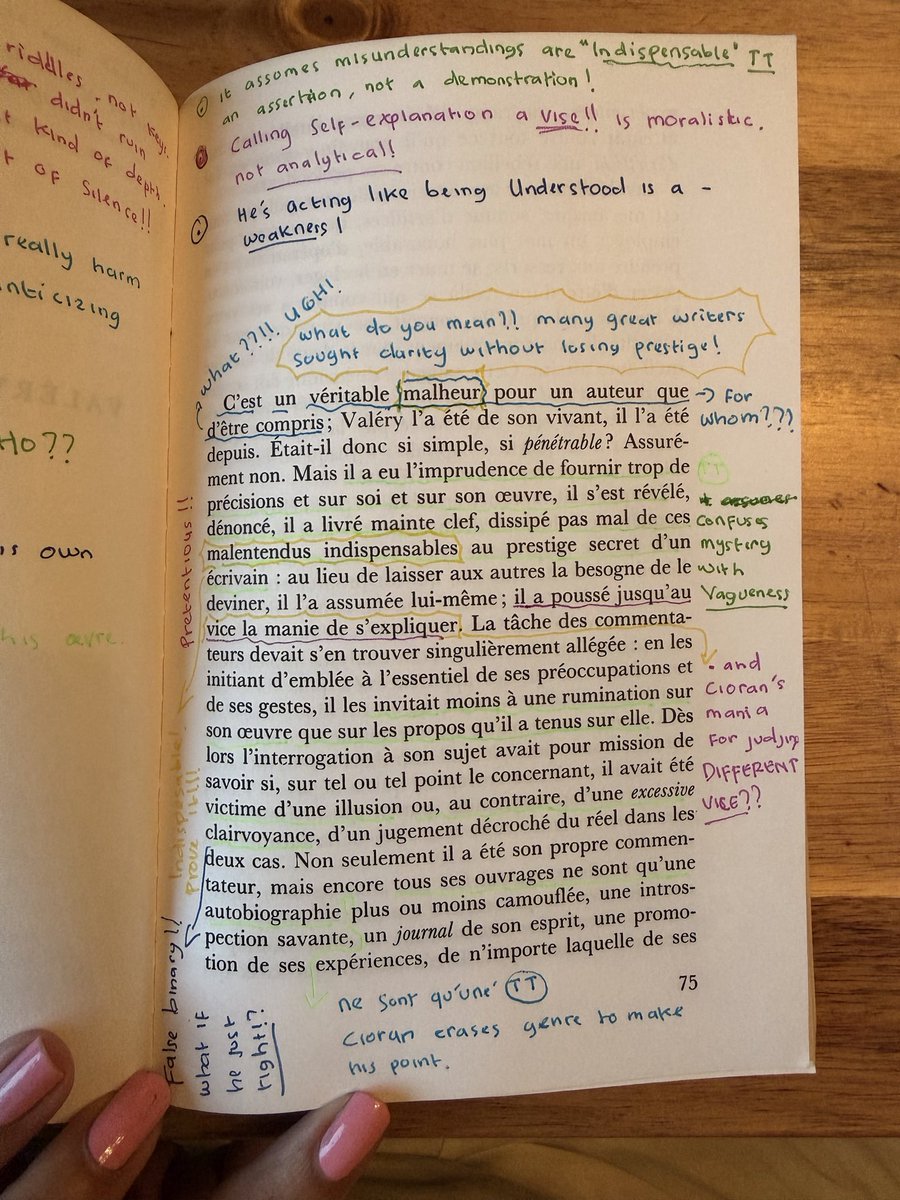 riddles, not keys.
didn't ruin
t kind of depth.
t of Silence!!
really harm
anticizing
HO??
is own
his œuvre.
It assumes misunderstandings are "Indispensable" TT
an assertion, not a demonstration!
Calling Self-explanation a vise!! is moralistic.
not analytical!
He's acting like being Understood is a -
weakness!
what??!! UGH!
what do you mean?! many great writers
sought clarity without losing prestige!
C'est un véritable malheur pour un auteur que
d'être compris ; Valéry l'a été de son vivant, il l'a été
depuis. Était-il donc si simple, si pénétrable ? Assuré-
ment non. Mais il a eu l'imprudence de fournir trop de
précisions et sur soi et sur son œuvre, il s'est révélé,
dénoncé, il a livré mainte clef, dissipé pas mal de ces
malentendus indispensables au prestige secret d'un
écrivain : au lieu de laisser aux autres la besogne de le
deviner, il l'a assumée lui-même ; il a poussé jusqu'au
vice la manie de s'expliquer. La tâche des commenta-
teurs devait s'en trouver singulièrement allégée : en les
initiant d'emblée à l'essentiel de ses préoccupations et
de ses gestes, il les invitait moins à une rumination sur
son œuvre que sur les propos qu'il a tenus sur elle. Dès
lors l'interrogation à son sujet avait pour mission de
savoir si, sur tel ou tel point le concernant, il avait été
victime d'une illusion ou, au contraire, d'une excessive
clairvoyance, d'un jugement décroché du réel dans les
deux cas. Non seulement il a été son propre commen-
tateur, mais encore tous ses ouvrages ne sont qu'une
autobiographie plus ou moins camouflée, une intros-
pection savante, un journal de son esprit, une promo-
tion de ses expériences, de n'importe laquelle de ses
75
→ For
whom???!
TT
confuses
mystery
with
Vagueness
- and
Cioran's
mania
For judjing
DIFFERENT
VICE??
Pretentious!!
Indispensable!
prove it!!
False binary!!
what if
he just
right!?
ne sont qu'une' TT
Cioran erases genre to make
his point.